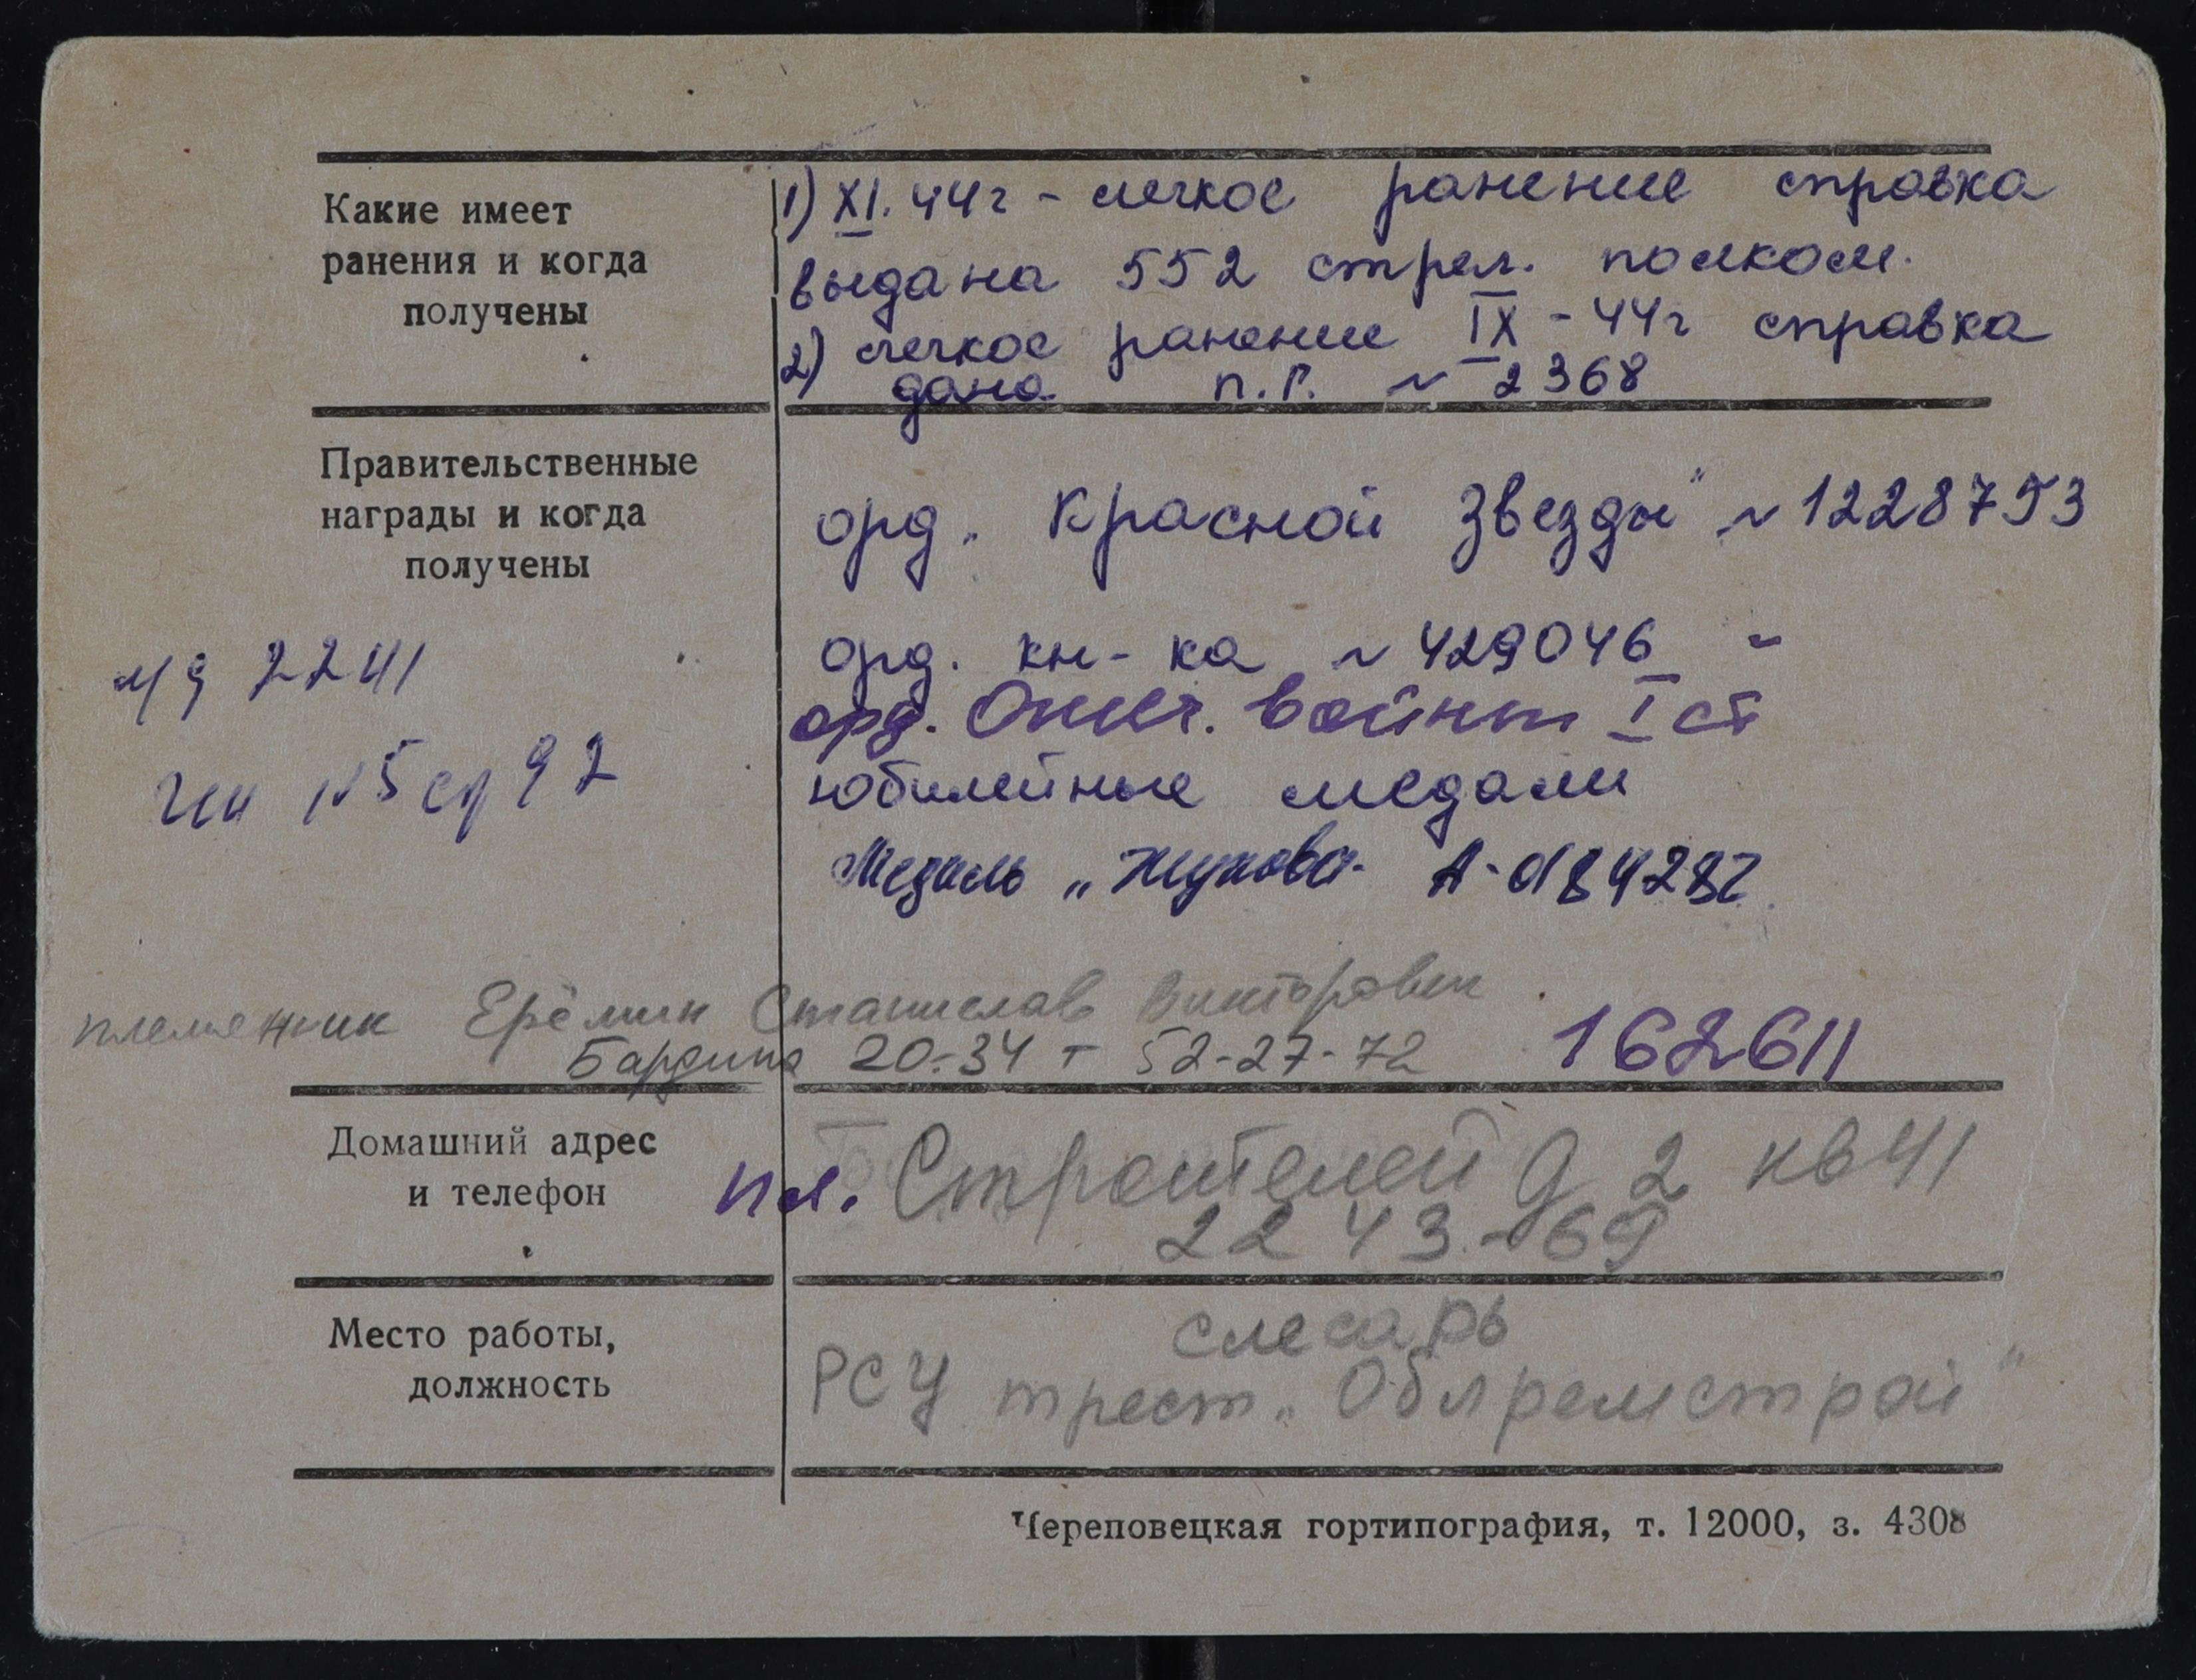 Какие имеет
ранения и когда
получены
1) XI. 44г - легкое ранение справка
выдана 552 стрел. полком.
2) легкое ранение IX - 44г справка
дана п.г. № 2368
Правительственные
награды и когда
получены
орд. „Красной Звезды" № 1228753
орд. кн-ка № 429046
орд. Отеч. войны I ст
юбилейные медали
Медаль „Жукова А-0184282
уд 2241
№5 ср 92
племянник Ерёмин Станислав Викторович
Бардина 20-34 т 52-27-72
162611
Домашний адрес
и телефон
пл. Строителей д 2 кв 41
22 43-69
Место работы,
должность
слесарь
РСУ трест „Облремстрой"
Череповецкая гортипография, т. 12000, з. 4308